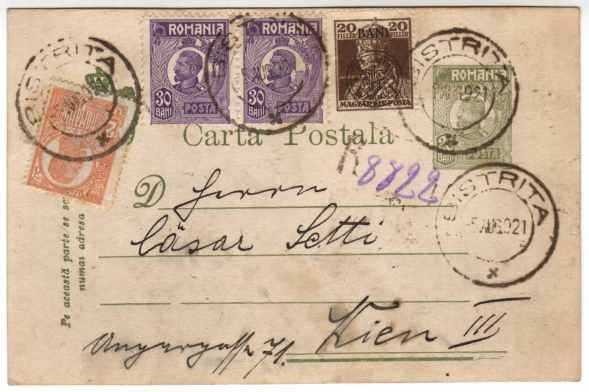 ROMANIA
30 BANI
POSTA
ROMANIA
30 BANI
POSTA
20 20
BANI
MAGYAR KIR. POSTA
ROMANIA
BANI
BISTRITA
BISTRITA
BISTRITA
5 AUG 921
Carta Postala
R 8822
D Herrn
Cäsar Setti
Wien III
Ungargasse 71.
Pe această parte se scrie
numai adresa